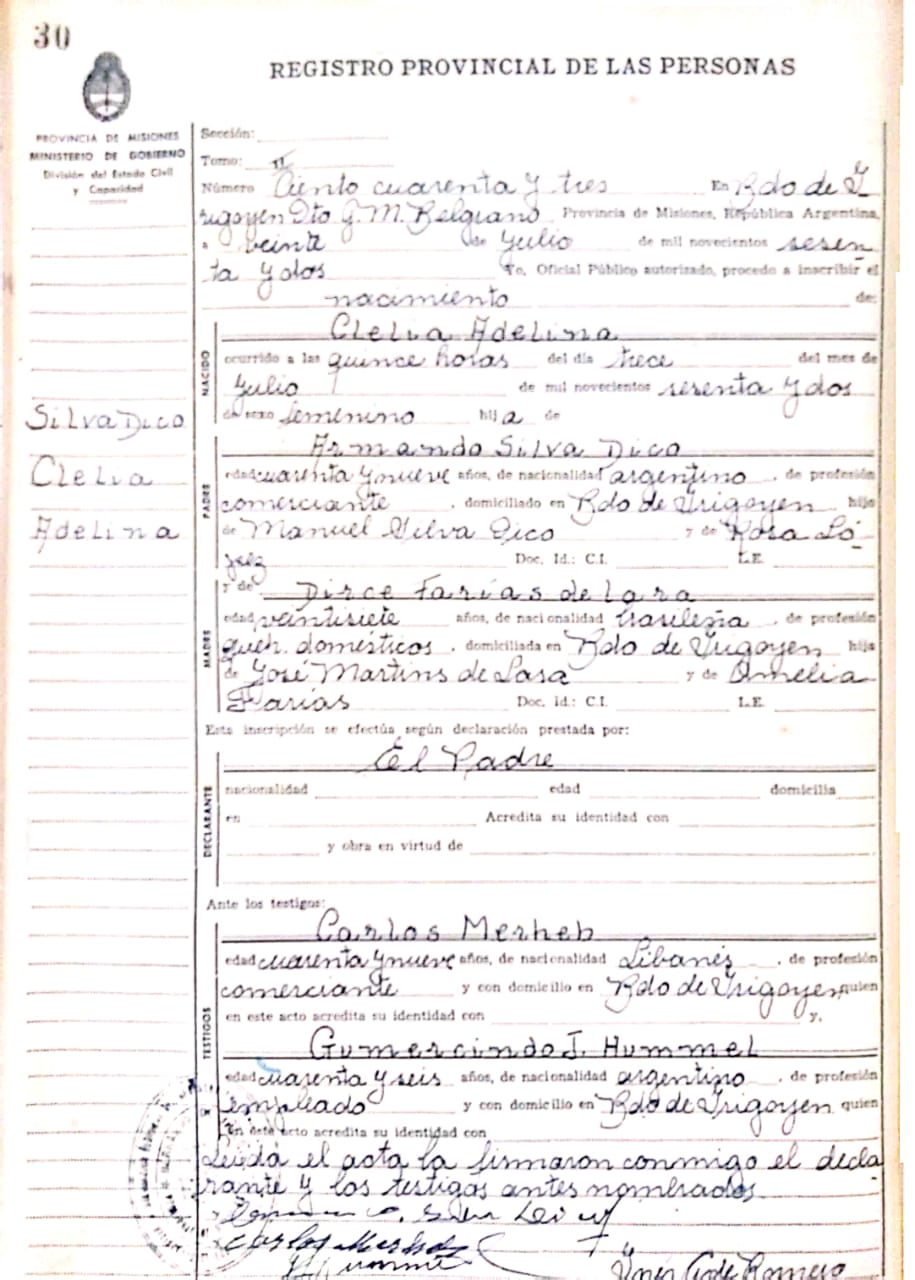 30
REGISTRO PROVINCIAL DE LAS PERSONAS
PROVINCIA DE MISIONES
MINISTERIO DE GOBIERNO
División del Estado Civil
y Capacidad
Sección:
Tomo: II
Número Ciento cuarenta y tres En Bdo de I
rigoyen Dto G. M. Belgrano Provincia de Misiones, República Argentina,
a veinte de Julio de mil novecientos sesen
ta y dos Yo, Oficial Público autorizado, procedo a inscribir el
nacimiento de:
NACIDO
Clelia Adelina
ocurrido a las quince horas del día trece del mes de
Julio de mil novecientos sesenta y dos
de sexo femenino hija de
Silva Dico
Clelia
Adelina
PADRE
Armando Silva Dico
edad cuarenta y nueve años, de nacionalidad argentino, de profesión
comerciante, domiciliado en Bdo de Irigoyen hijo
de Manuel Silva Dico y de Rosa Ló-
pez Doc. Id.: C.I. L.E.
MADRE
y de Dirce Farías de Lara
edad veintisiete años, de nacionalidad brasileña, de profesión
queh. domésticos, domiciliada en Bdo de Irigoyen hija
de José Martins de Lara y de Amelia
Farías Doc. Id.: C.I. L.E.
Esta inscripción se efectúa según declaración prestada por:
DECLARANTE
El Padre
nacionalidad edad domicilia
en Acredita su identidad con
y obra en virtud de
Ante los testigos:
TESTIGOS
Carlos Merheb
edad cuarenta y nueve años, de nacionalidad Libanés, de profesión
comerciante y con domicilio en Bdo de Irigoyen, quien
en este acto acredita su identidad con y,
Gumercindo J. Hummel
edad cuarenta y seis años, de nacionalidad argentino, de profesión
empleado y con domicilio en Bdo de Irigoyen quien
en este acto acredita su identidad con
Leída el acta la firmaron conmigo el decla
rante y los testigos antes nombrados.